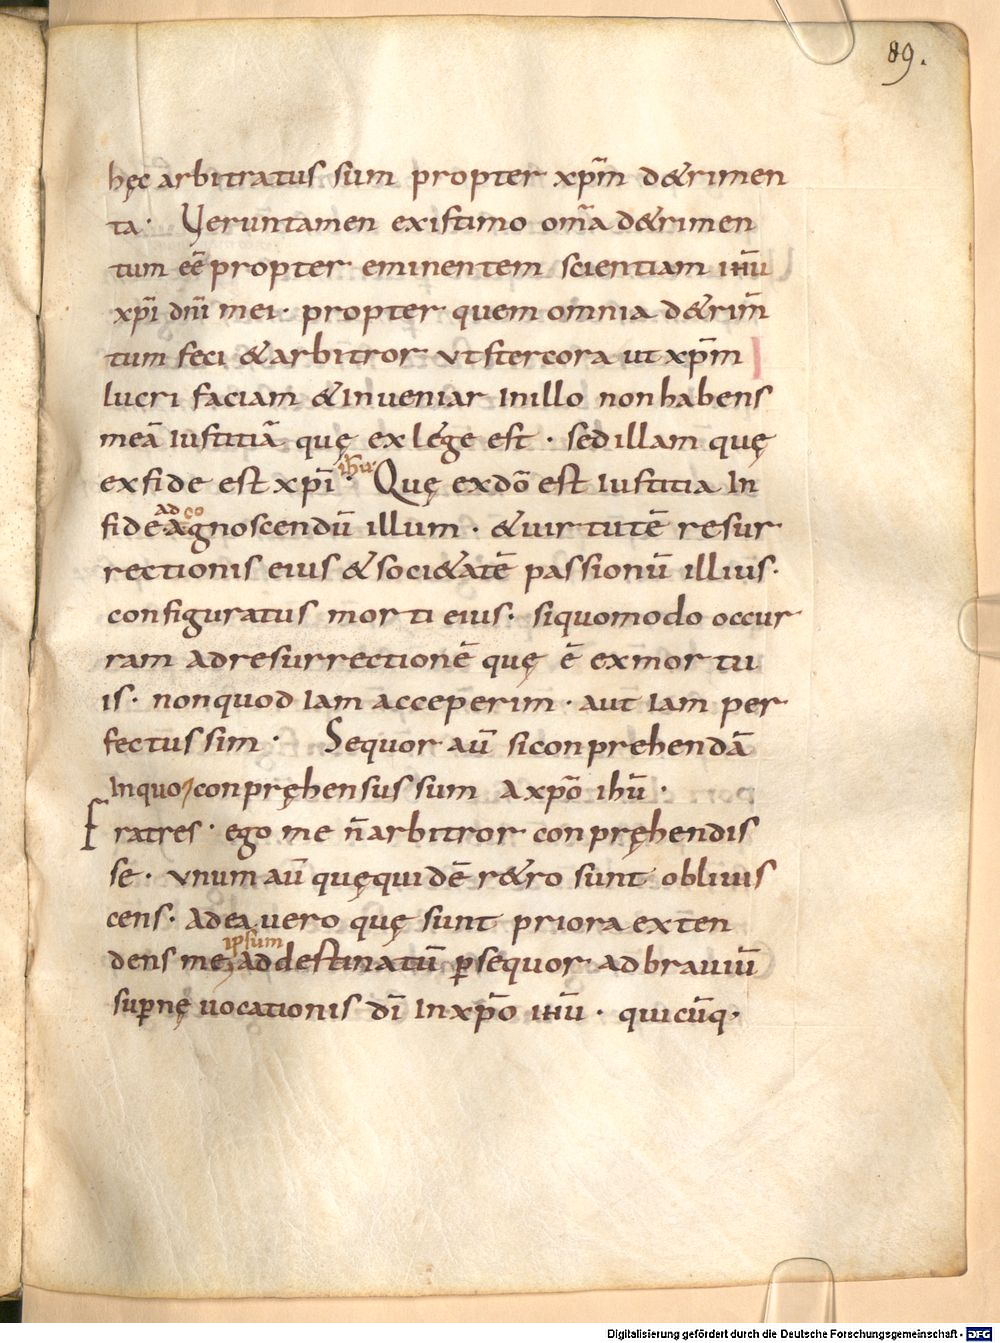 89.
hęc arbitratus sum propter xp̄m d&rimen
ta· Veruntamen existimo om̄a d&rimen
tum eē propter eminentem scientiam ihū
xp̄i dn̄i mei· propter quem omnia d&rim̄
tum feci &arbitror vt stercora ut xp̄m
lucri faciam &inueniar inillo nonhabens
meā iustitiā quę exlege est· sedillam quę
exfide est xp̄i ihū· Quę exdō est iustitia in
fide ad agnoscendū illum· &uirtutē resur
rectionis eius &soci&atē passionū illius·
configuratus morti eius· siquomodo occur
ram adresurrectionē quę ē exmortu
is· nonquod iam acceperim· aut iam per
fectus sim· Sequor aū siconprehendā
inquo conpręhensus sum axp̄o ihū·
Fratres· ego me n̄ arbitror conpręhendis
se· vnum aū quęquidē r&ro sunt obliuis
cens· adea uero quę sunt priora exten
dens me ipsum addestinatū ꝑsequor adbrauiū
suꝑnę uocationis dī inxp̄o ihū· quicūq·
Digitalisierung gefördert durch die Deutsche Forschungsgemeinschaft - DFG